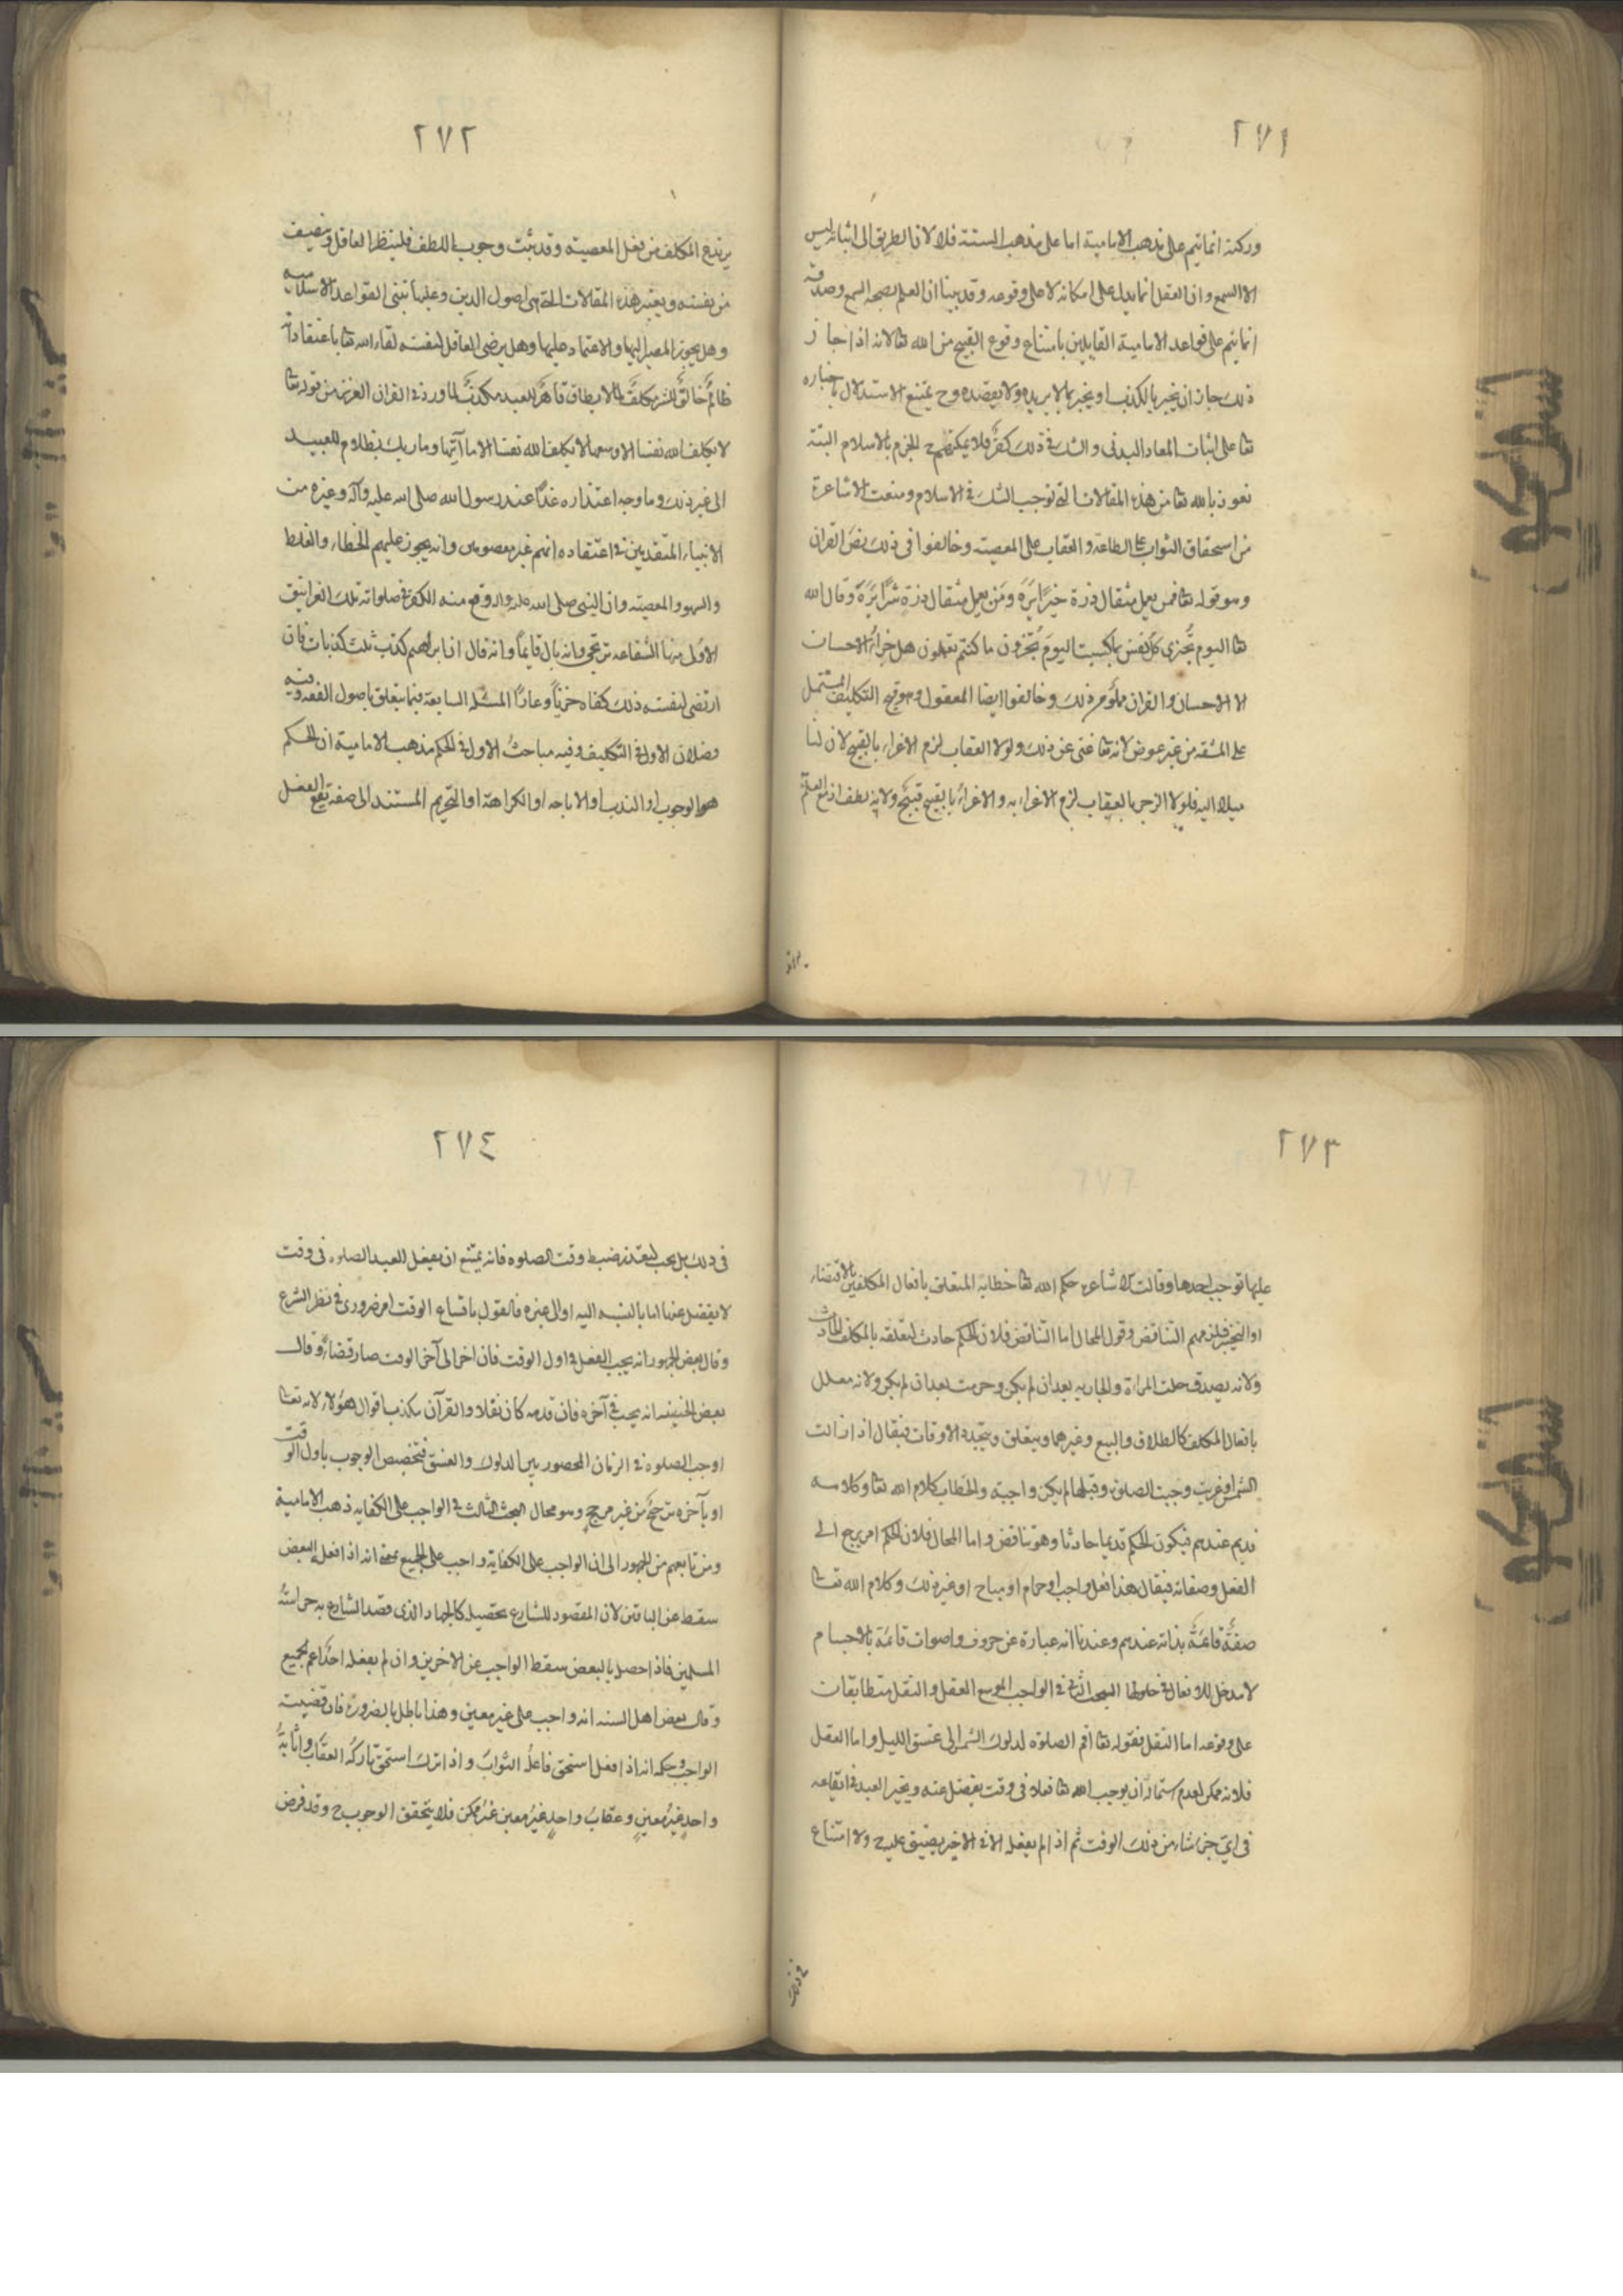 ٢٧١
وركنه انما يتم على مذهب الامامية اما على مذهب السنة فلا لان الطريق الى اثباته ليس
الا السمع وان العقل انما يدل على امكانه لا على وقوعه وقد بينا ان العلم بصحة السمع وصدقه
انما يتم على قواعد الامامية القايلين بامتناع وقوع القبيح من الله تعا لانه اذا جاز
ذلك جاز ان يخبر بالكذب او يخبر بما لا يريده ولا يقصده وح يمتنع الاستدلال باخباره
تعا على اثبات المعاد البدنى والشك فى ذلك كفر فلا يمكنهم ح الجزم بالاسلام البتة
نعوذ بالله تعا من هذه المقالات التى توجب الشك فى الاسلام ومنعت الاشاعرة
من استحقاق الثواب على الطاعة والعقاب على المعصية وخالفوا فى ذلك نص القران
وهو قوله تعا فمن يعمل مثقال ذرة خيرًا يَرَه ومَن يعمل مثقال ذرة شرًّا يَرَه وقال الله
تعا اليوم تُجزى كل نفس بما كسبت اليومَ تُجزون ما كنتم تعملون هل جزاءُ الاحسان
الا الاحسان والقران مملوّ من ذلك وخالفوا ايضا المعقول وهو قبح التكليف المشتمل
على المشقه من غير عوض لانه تعا غنى عن ذلك ولولا العقاب لزم الاغراء بالقبيح لان لنا
ميلا اليه فلولا الزجر بالعقاب لزم الاغراء به والاغراءُ بالقبيح قبيحٌ ولانه لطف اذ مع العلم
٢٧٢
يرتدع المكلف من فعل المعصية وقد ثبت وجوب اللطف فلينظر العاقل وينصف
من نفسه ويعتبر هذه المقالات التى هى اصول الدين وعليها تبنى القواعد الاسلامية
وهل يجوز المصير اليها والاعتماد عليها وهل يرضى العاقل لنفسه لقاء الله تعا باعتقاد انه
ظالمٌ خالقٌ للشر مكلفٌ بما لا يطاق قاهرٌ للعبيد مكذبٌ لما ورد فى القران العزيز من قوله تعا
لا يكلف الله نفسا الا وسعها لا يكلف الله نفسا الا ما آتيها وما ربك بظلام للعبيد
الى غير ذلك وما وجه اعتذاره غدًا عند رسول الله صلى الله عليه وآله وغيره من
الانبياء المتقدمين فى اعتقاده انهم غير معصومين وانه يجوز عليهم الخطاء والغلط
والسهو والمعصية وان النبى صلى الله عليه واله وقع منه الكفر فى صلواته تلك الغرانيق
الاولى منها الشفاعه ترتجى وانه بال قايمًا وانه قال ان ابراهيم كذب ثلث كذبات فان
ارتضى لنفسه ذلك كفاه خزيًا وعارًا المسئله السابعة فيما يتعلق باصول الفقه وفيه
فصلان الاول فى التكليف وفيه مباحث الاول فى الحكم مذهب الامامية ان الحكم
هو الوجوب او الندب او الاباحه او الكراهة او التحريم المستند الى صفة تقع الفعل
٢٧٣
عليها توجب احدها وقالت الاشاعره حكم الله تعا خطابه المتعلق بافعال المكلفين بالاقتضاء
او التخيير فلزمهم التناقض وقول المحال اما التناقض فلان الحكم حادث لتعلقه بالمكلف الحادث
ولانه يصدق حلت المراة والجاريه بعد ان لم يكن وحرمت بعد ان لم يكن ولانه معلل
بافعال المكلف كالطلاق والبيع وغيرهما ويتعلق ويتجدد الاوقات فيقال اذا زالت
الشمس او غربت وجبت الصلوة وقبلها لم يكن واجبة والخطاب كلام الله تعا وكلامه
قديم عندهم فيكون الحكم قديما حادثا وهو تناقض واما المحال فلان الحكم امر يرجع الى
الفعل وصفاته فيقال هذا فعل واجب او حرام او مباح او غير ذلك وكلام الله تعا
صفةٌ قائمةٌ بذاته عندهم وعندنا انه عبارة عن حروف واصوات قائمة بالاجسام
لا مدخل للافعال فى حلولها البحث الثانى فى الواجب الموسع العقل والنقل متطابقان
على وقوعه اما النقل فقوله تعا اقم الصلوة لدلوك الشمس الى غسق الليل واما العقل
فلانه ممكن لعدم استحالة ان يوجب الله تعا فعلا فى وقت يفضل عنه ويخير العبد فى ايقاعه
فى اى جزء شاء من ذلك الوقت ثم اذا لم يفعله الا فى الاخير يضيق عليه ح ولا امتناع
فى ذلك
٢٧٤
فى ذلك بل يجب لتعذر ضبط وقت الصلوه فانه يمتنع ان يفعل العبد الصلوه فى وقت
لا يفضل عنها اما بالنسبه اليه او الى غيره فالقول باتساع الوقت امر ضرورى فى نظر الشرع
وقال بعض الجمهور انه يجب الفعل فى اول الوقت فان اخر الى آخر الوقت صار قضاءً وقال
بعض الحنيفه انه يجب فى آخره فان قدمه كان نفلا والقرآن يكذب اقوال هؤلاء لانه تعا
اوجب الصلوة فى الزمان المحصور بين الدلوك والغسق فتخصيص الوجوب باول الوقت
او بآخره ترجيحٌ من غير مرجح وهو محال البحث الثالث فى الواجب على الكفايه ذهب الامامية
ومن تابعهم من الجمهور الى ان الواجب على الكفاية واجب على الجميع بمعنى انه اذا فعل البعض
سقط عن الباقين لان المقصود للشارع تحصيله كالجهاد الذى قصد الشارع به حراسة
المسلمين فاذا حصل بالبعض سقط الواجب عن الاخرين وان لم يفعله احدٌ اثم الجميع
وقال بعض اهل السنه انه واجب على غير معين وهذا باطل بالضرورة فان قضية
الواجب وحكمه انه اذا فعل استحق فاعلُه الثوابَ واذا ترك استحق تاركُه العقاب واثابةُ
واحدٍ غيرُ معينٍ وعقابُ واحدٍ غيرُ معينٍ غيرُ ممكن فلا يتحقق الوجوب ح وقد فرض